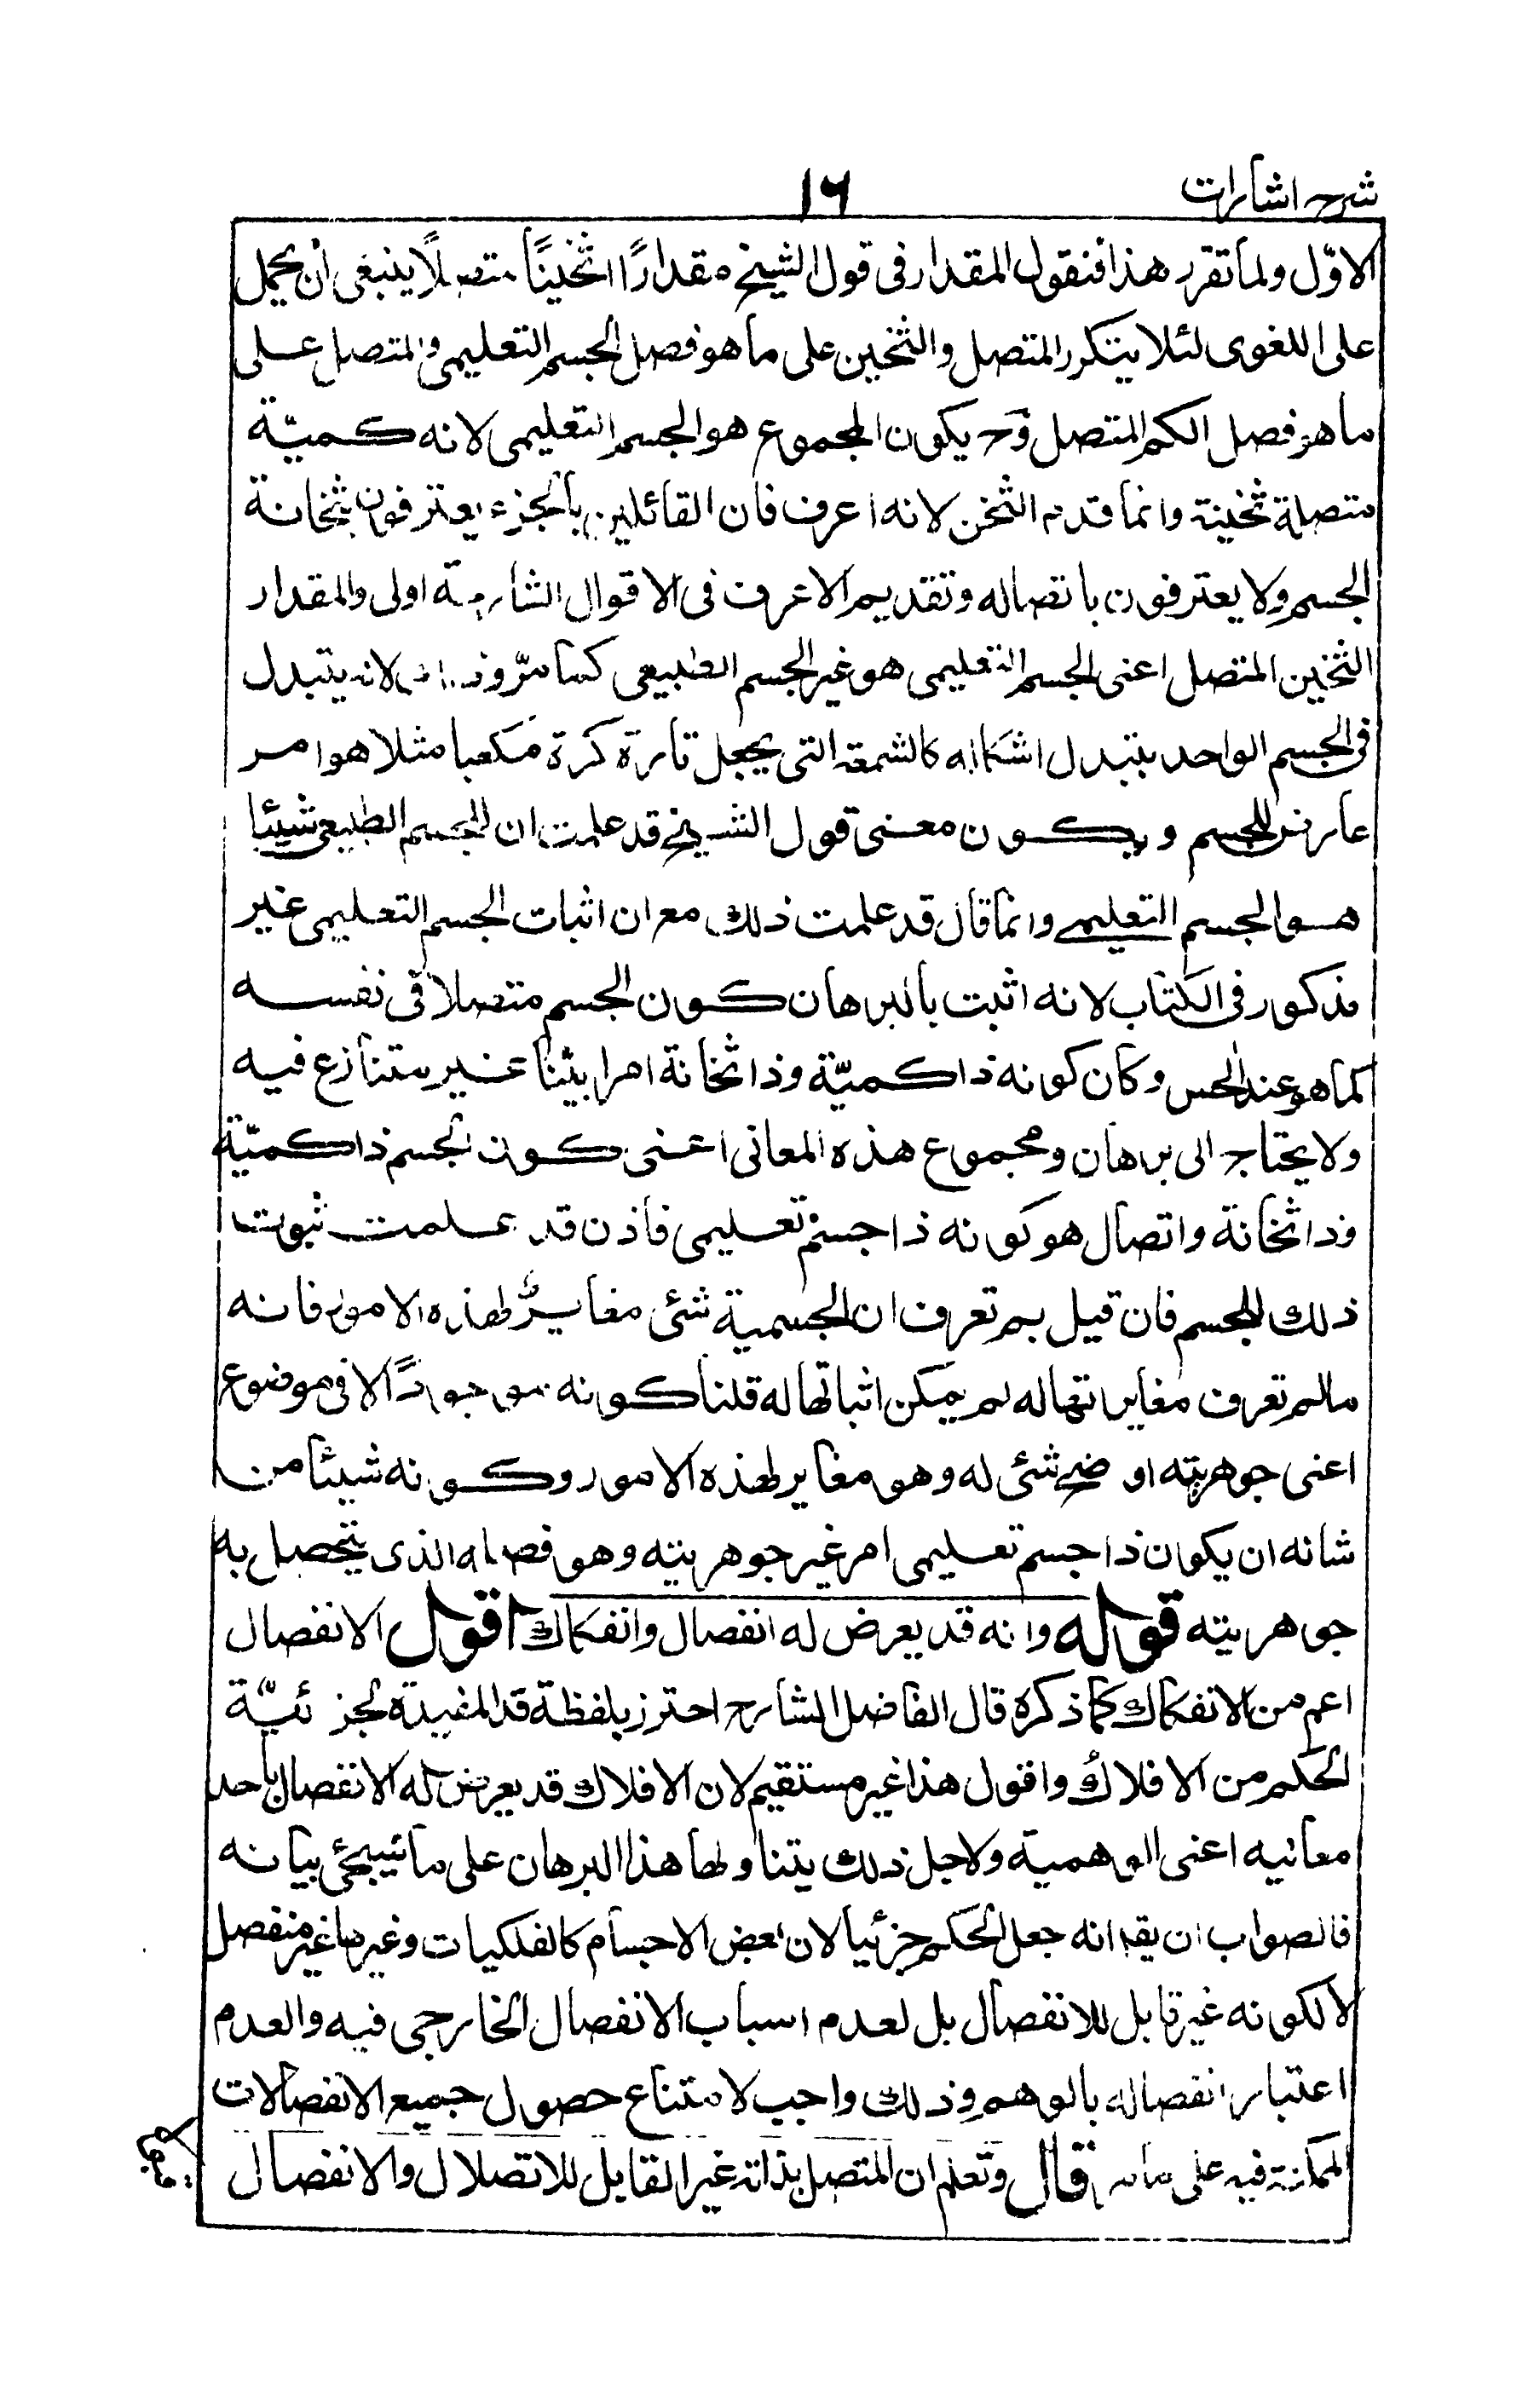 شرح اشارات
١٦
الاوّل ولما تقرر هذا فنقول المقدار فى قول الشيخ مقدارًا ثخينًا متصلًا ينبغى أن يحمل
على اللغوى لئلا يتكرر المتصل والثخين على ما هو فصل الجسم التعليمى والمتصل على
ما هو فصل الكم المتصل وح يكون المجموع هو الجسم التعليمى لانه كميّة
متصلة ثخينة وانما قدم الثخن لانه اعرف فان القائلين بالجزء يعترفون بثخانة
الجسم ولا يعترفون باتصاله وتقديم الاعرف فى الاقوال الشارحة اولى والمقدار
الثخين المتصل اعنى الجسم التعليمى هو غير الجسم الطبيعى كما مرّ لانه يتبدل
فى الجسم الواحد بتبدل اشكاله كالشمعة التى يجعل تارة كرة مكعبا مثلا هو امر
عارض للجسم ويكون معنى قول الشيخ قد علمت ان للجسم الطبيعى شيئا
هو الجسم التعليمے وانما قال قد علمت ذلك مع ان اثبات الجسم التعليمى غير
مذكور فى الكتاب لانه اثبت بالبرهان كون الجسم متصلا فى نفسه
كما هو عند الحس وكان كونه ذا كميّة وذا ثخانة امرا بيّنا غير متنازع فيه
ولا يحتاج الى برهان ومجموع هذه المعانى اعنى كون الجسم ذا كميّة
وذا ثخانة واتصال هو كونه ذا جسم تعليمى فاذن قد علمت ثبوت
ذلك للجسم فان قيل بم تعرف ان الجسمية شئى مغايرٌ لهذه الامور فانه
مالم تعرف مغايرتها له لم يمكن اثباتها له قلنا كونه موجودًا لا فى موضوع
اعنى جوهريته او شئى له وهو مغاير لهذه الامور وكونه شيئا من
شانه ان يكون ذا جسم تعليمى امر غير جوهريته وهو فصله الذى يتحصل به
جوهريته قوله وانه قد يعرض له انفصال وانفكاك اقول الانفصال
اعم من الانفكاك كما ذكره قال الفاضل الشارح احترز بلفظة قد المفيدة لجزئيّة
الحكم من الافلاك واقول هذا غير مستقيم لان الافلاك قد يعرض له الانفصال باحد
معانيه اعنى الوهمية ولاجل ذلك يتناولها هذا البرهان على ما سيجئى بيانه
فالصواب ان يقه انه جعل الحكم جزئيا لان بعض الاجسام كالفلكيات وغيرها غير منفصل
لا لكونه غير قابل للانفصال بل لعدم اسباب الانفصال الخارجى فيه والعدم
اعتبار انفصاله بالوهم وذلك واجب لامتناع حصول جميع الانفصالات
الممكنة فيه على قال وتعلم ان المتصل بذاته غير القابل للاتصلال والانفصال